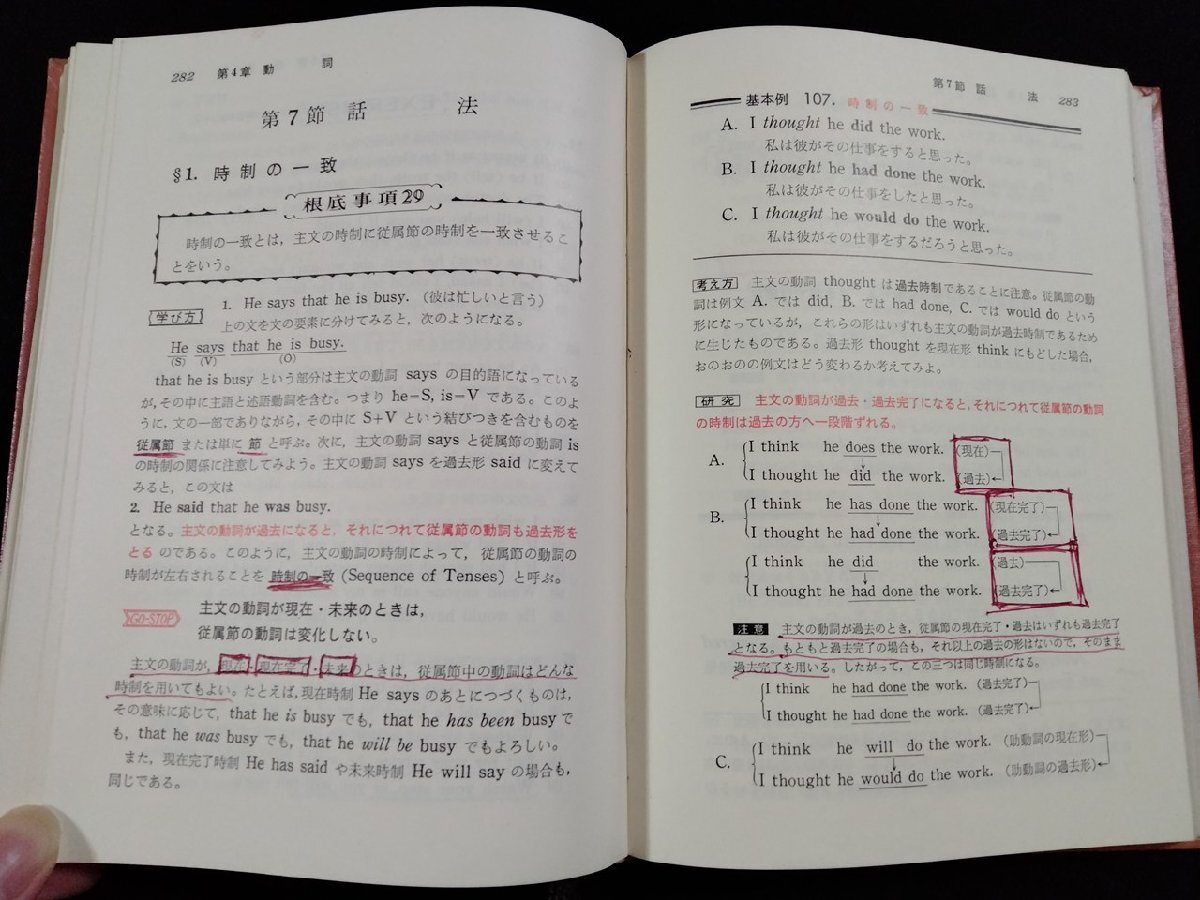 282 第4章 動 詞
第7節 話 法
§1. 時制の一致
根底事項29
時制の一致とは，主文の時制に従属節の時制を一致させるこ
とをいう。
学び方
1. He says that he is busy.（彼は忙しいと言う）
上の文を文の要素に分けてみると，次のようになる。
He says that he is busy.
(S) (V) (O)
that he is busy という部分は主文の動詞 says の目的語になっている
が，その中に主語と述語動詞を含む。つまり he－S, is－V である。このよ
うに，文の一部でありながら，その中に S+V という結びつきを含むものを
従属節 または単に 節 と呼ぶ。次に，主文の動詞 says と従属節の動詞 is
の時制の関係に注意してみよう。主文の動詞 says を過去形 said に変えて
みると，この文は
2. He said that he was busy.
となる。主文の動詞が過去になると，それにつれて従属節の動詞も過去形を
とる のである。このように，主文の動詞の時制によって，従属節の動詞の
時制が左右されることを 時制の一致 (Sequence of Tenses) と呼ぶ。
GO-STOP 主文の動詞が現在・未来のときは，
従属節の動詞は変化しない。
主文の動詞が，現在・現在完了・未来のときは，従属節中の動詞はどんな
時制を用いてもよい。たとえば，現在時制 He says のあとにつづくものは，
その意味に応じて，that he is busy でも，that he has been busy で
も，that he was busy でも，that he will be busy でもよろしい。
また，現在完了時制 He has said や未来時制 He will say の場合も，
同じである。
第7節 話 法 283
基本例 107. 時制の一致
A. I thought he did the work.
私は彼がその仕事をすると思った。
B. I thought he had done the work.
私は彼がその仕事をしたと思った。
C. I thought he would do the work.
私は彼がその仕事をするだろうと思った。
考え方 主文の動詞 thought は過去時制であることに注意。従属節の動
詞は例文 A. では did, B. では had done, C. では would do という
形になっているが，これらの形はいずれも主文の動詞が過去時制であるため
に生じたものである。過去形 thought を現在形 think にもどした場合，
おのおのの例文はどう変わるか考えてみよ。
研究 主文の動詞が過去・過去完了になると，それにつれて従属節の動詞
の時制は過去の方へ一段階ずれる。
A. I think he does the work. (現在)
I thought he did the work. (過去)
B. I think he has done the work. (現在完了)
I thought he had done the work. (過去完了)
I think he did the work. (過去)
I thought he had done the work. (過去完了)
注意 主文の動詞が過去のとき，従属節の現在完了・過去はいずれも過去完了
となる。もともと過去完了の場合も，それ以上の過去の形はないので，そのまま
過去完了を用いる。したがって，この三つは同じ時制になる。
I think he had done the work. (過去完了)
I thought he had done the work. (過去完了)
C. I think he will do the work. (助動詞の現在形)
I thought he would do the work. (助動詞の過去形)